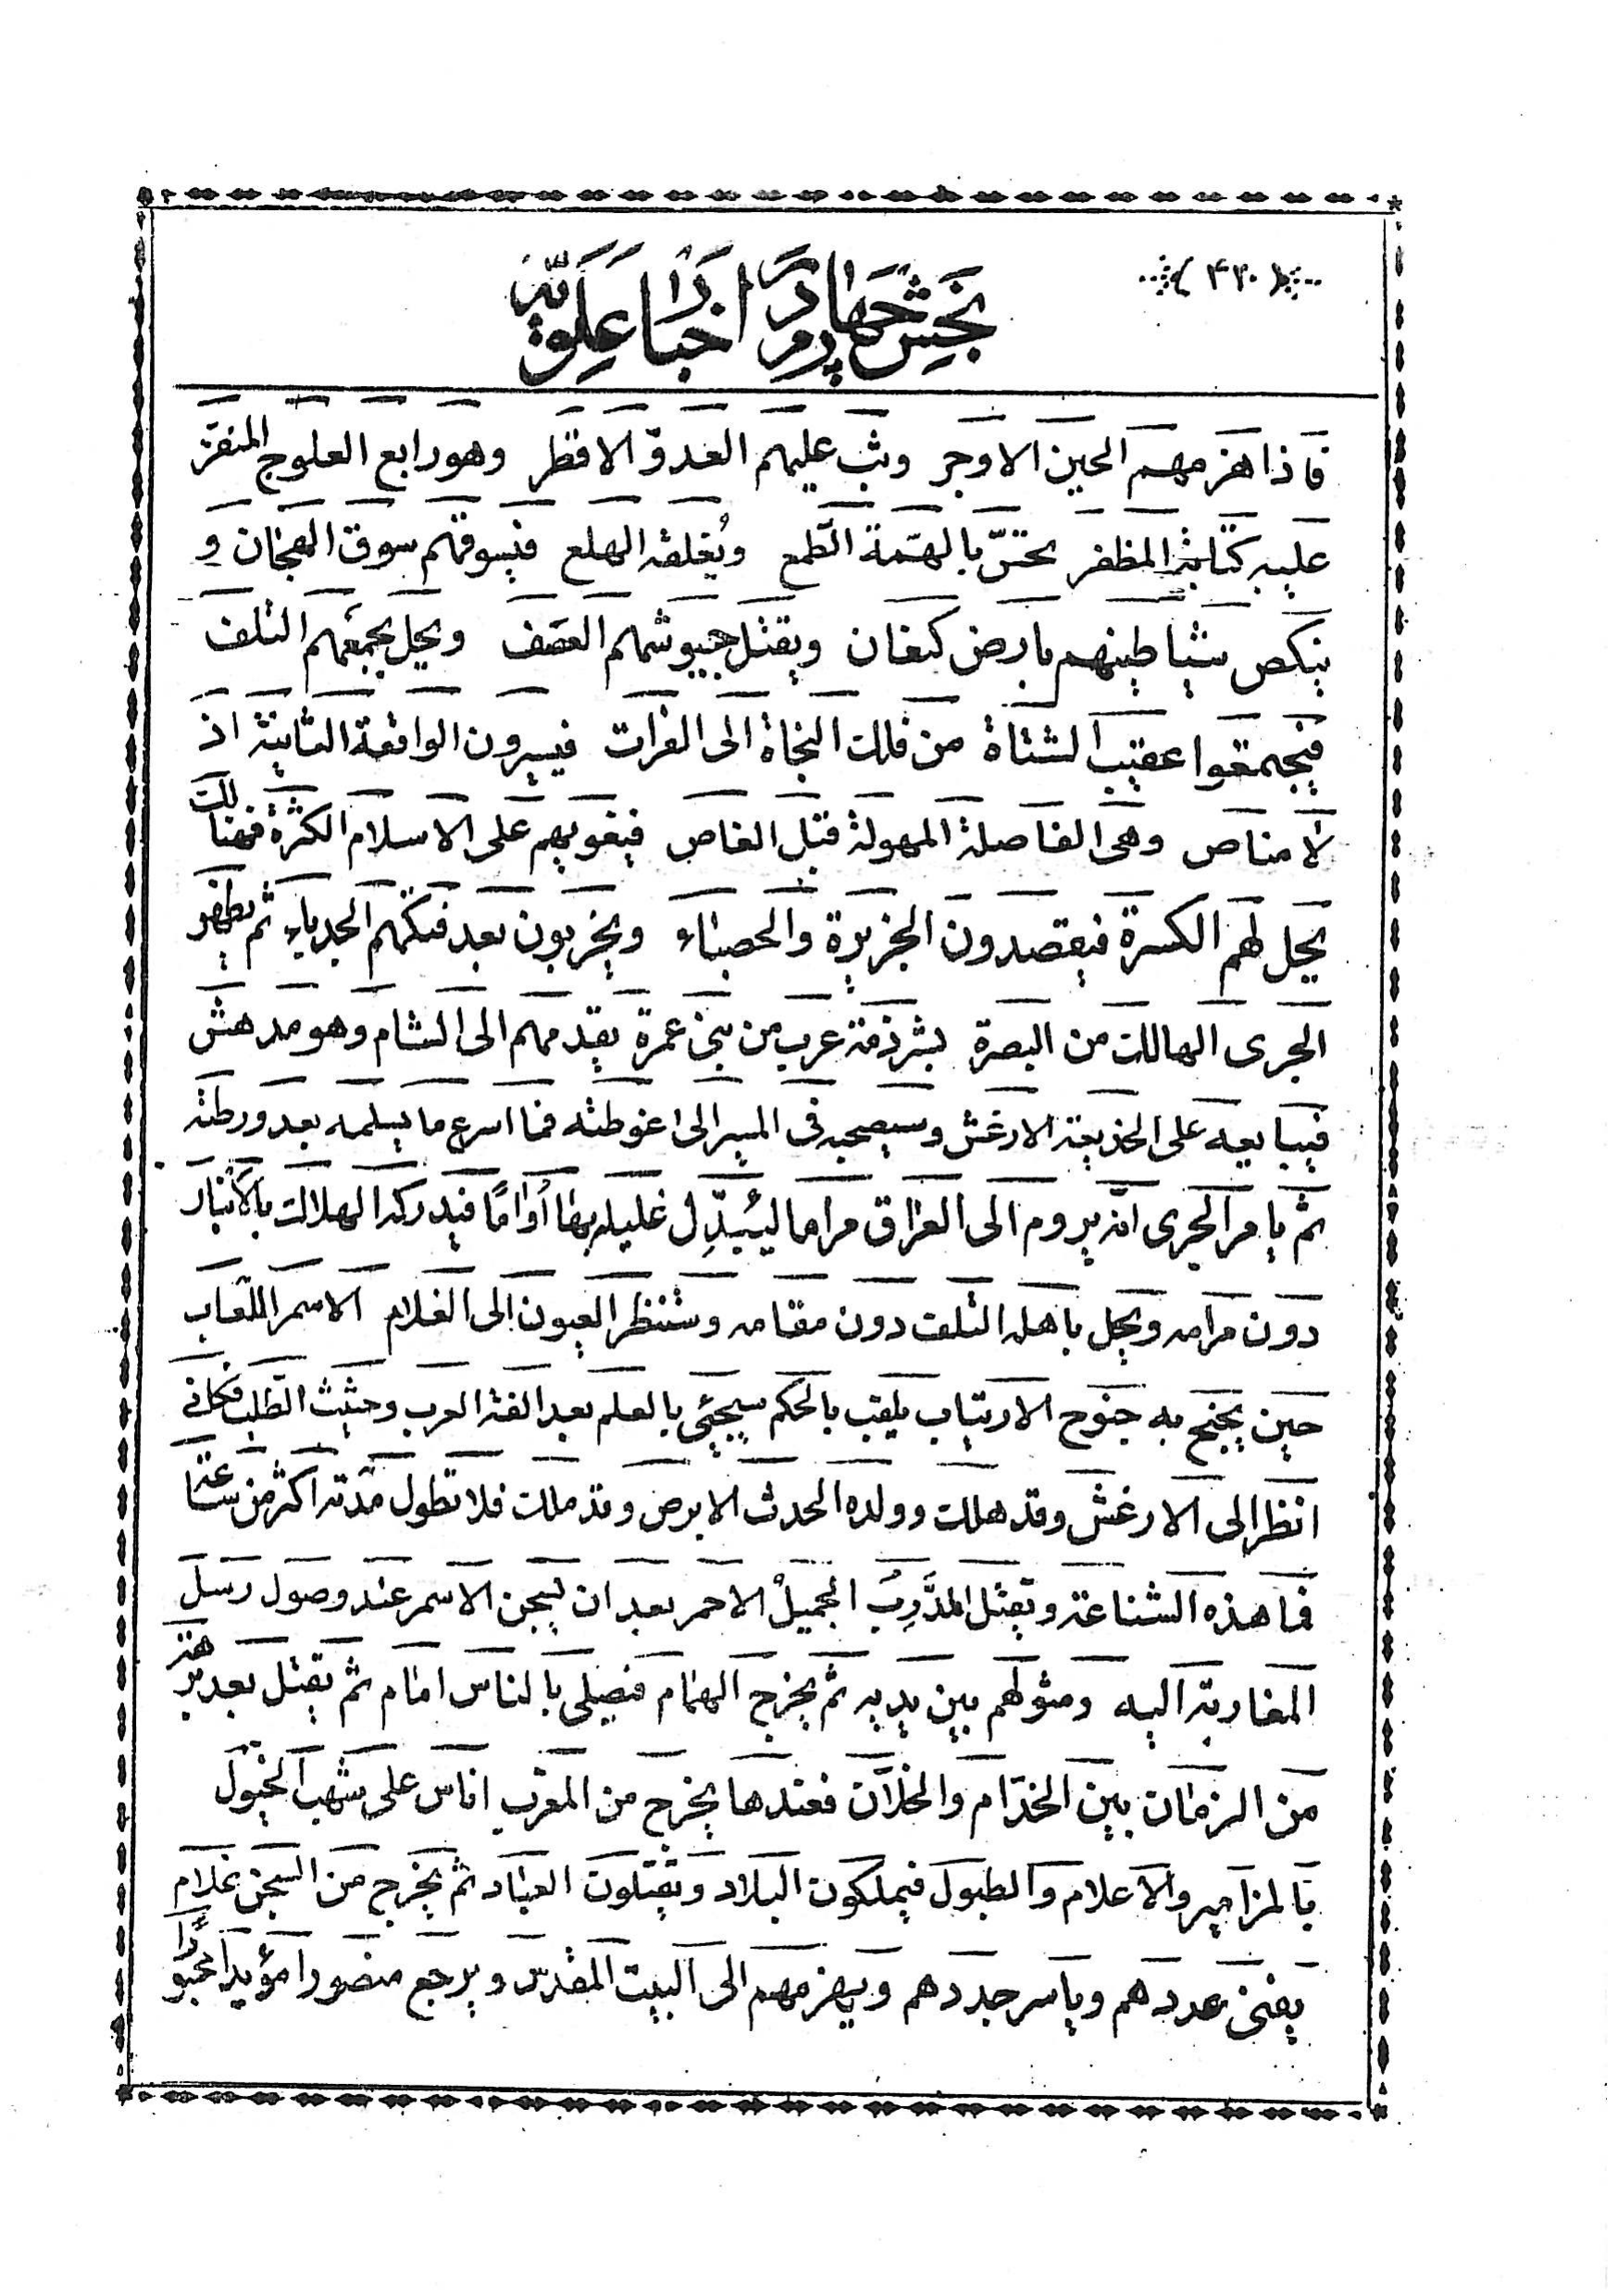 ﴿ ۴۲۰ ﴾
بخش چهارم در اخبار علویّه
فاذا هزمهم الحین الاوجر وثب علیهم العدوّ الاقطر وهو رابع العلوج المنفّر
علیه کتابة المظفر یحتسّ بالهمة الطمع ویُغلقه الهلع فیسوقهم سوق الهجان و
ینکص شیاطینهم بارض کنعان ویقتل جیوشهم العصف ویحل بجمعهم التلف
فیجمعوا عقیب الشتاة من فلک النجاة الی الفرات فیسیرون الواقعة الثانیة اذ
لا مناص وهی الفاصلة المهولة قبل الغاص فیغویهم علی الاسلام الکثرة فهنالک
یحل لهم الکسرة فیقصدون الجزیرة والحصباء ویخربون بعد فتکهم الجدباء ثم یظهر
الجری الهالک من البصرة بشرذمة عرب من بنی عمرة یقدمهم الی الشام وهو مدهش
فیبایعه علی الخدیعة الارغش وسیصحبه فی المسیر الی اغوطته فما اسرع ما یسلمه بعد ورطته
ثم یامر الجری انه یروم الی العراق مراما لیُبدِّل غلیله بها أواما فیدرکه الهلاک بالانبار
دون مرامه ویحل باهله التلف دون مقامه وستنظر العیون الی الغلام الاسمر اللعاب
حین یجنح به جنوح الارتیاب یلقب بالحکم سیجیئ بالعلم بعد الفة العرب وحثیث الطلب فکانی
انظر الی الارغش وقد هلک وولده الحدث الابرص وقد ملک فلا تطول مدته اکثر من ساعة
فما هذه الشناعة ویقتل المدَّرب الجمیل الاحمر بعد ان یسجن الاسمر عند وصول رسل
المغاربة الیه ومثولهم بین یدیه ثم یخرج الهمام فیصلی بالناس امام ثم یقتل بعد برهة
من الزمان بین الخدّام والخلّان فعندها یخرج من المغرب اناس علی شهب الخیول
بالمزامیر والاعلام والطبول فیملکون البلاد ویقتلون العباد ثم یخرج من السجن غلام
یفنی عددهم ویاسر جددهم ویهزمهم الی البیت المقدس ویرجع منصورا مؤیدا محبوًّا